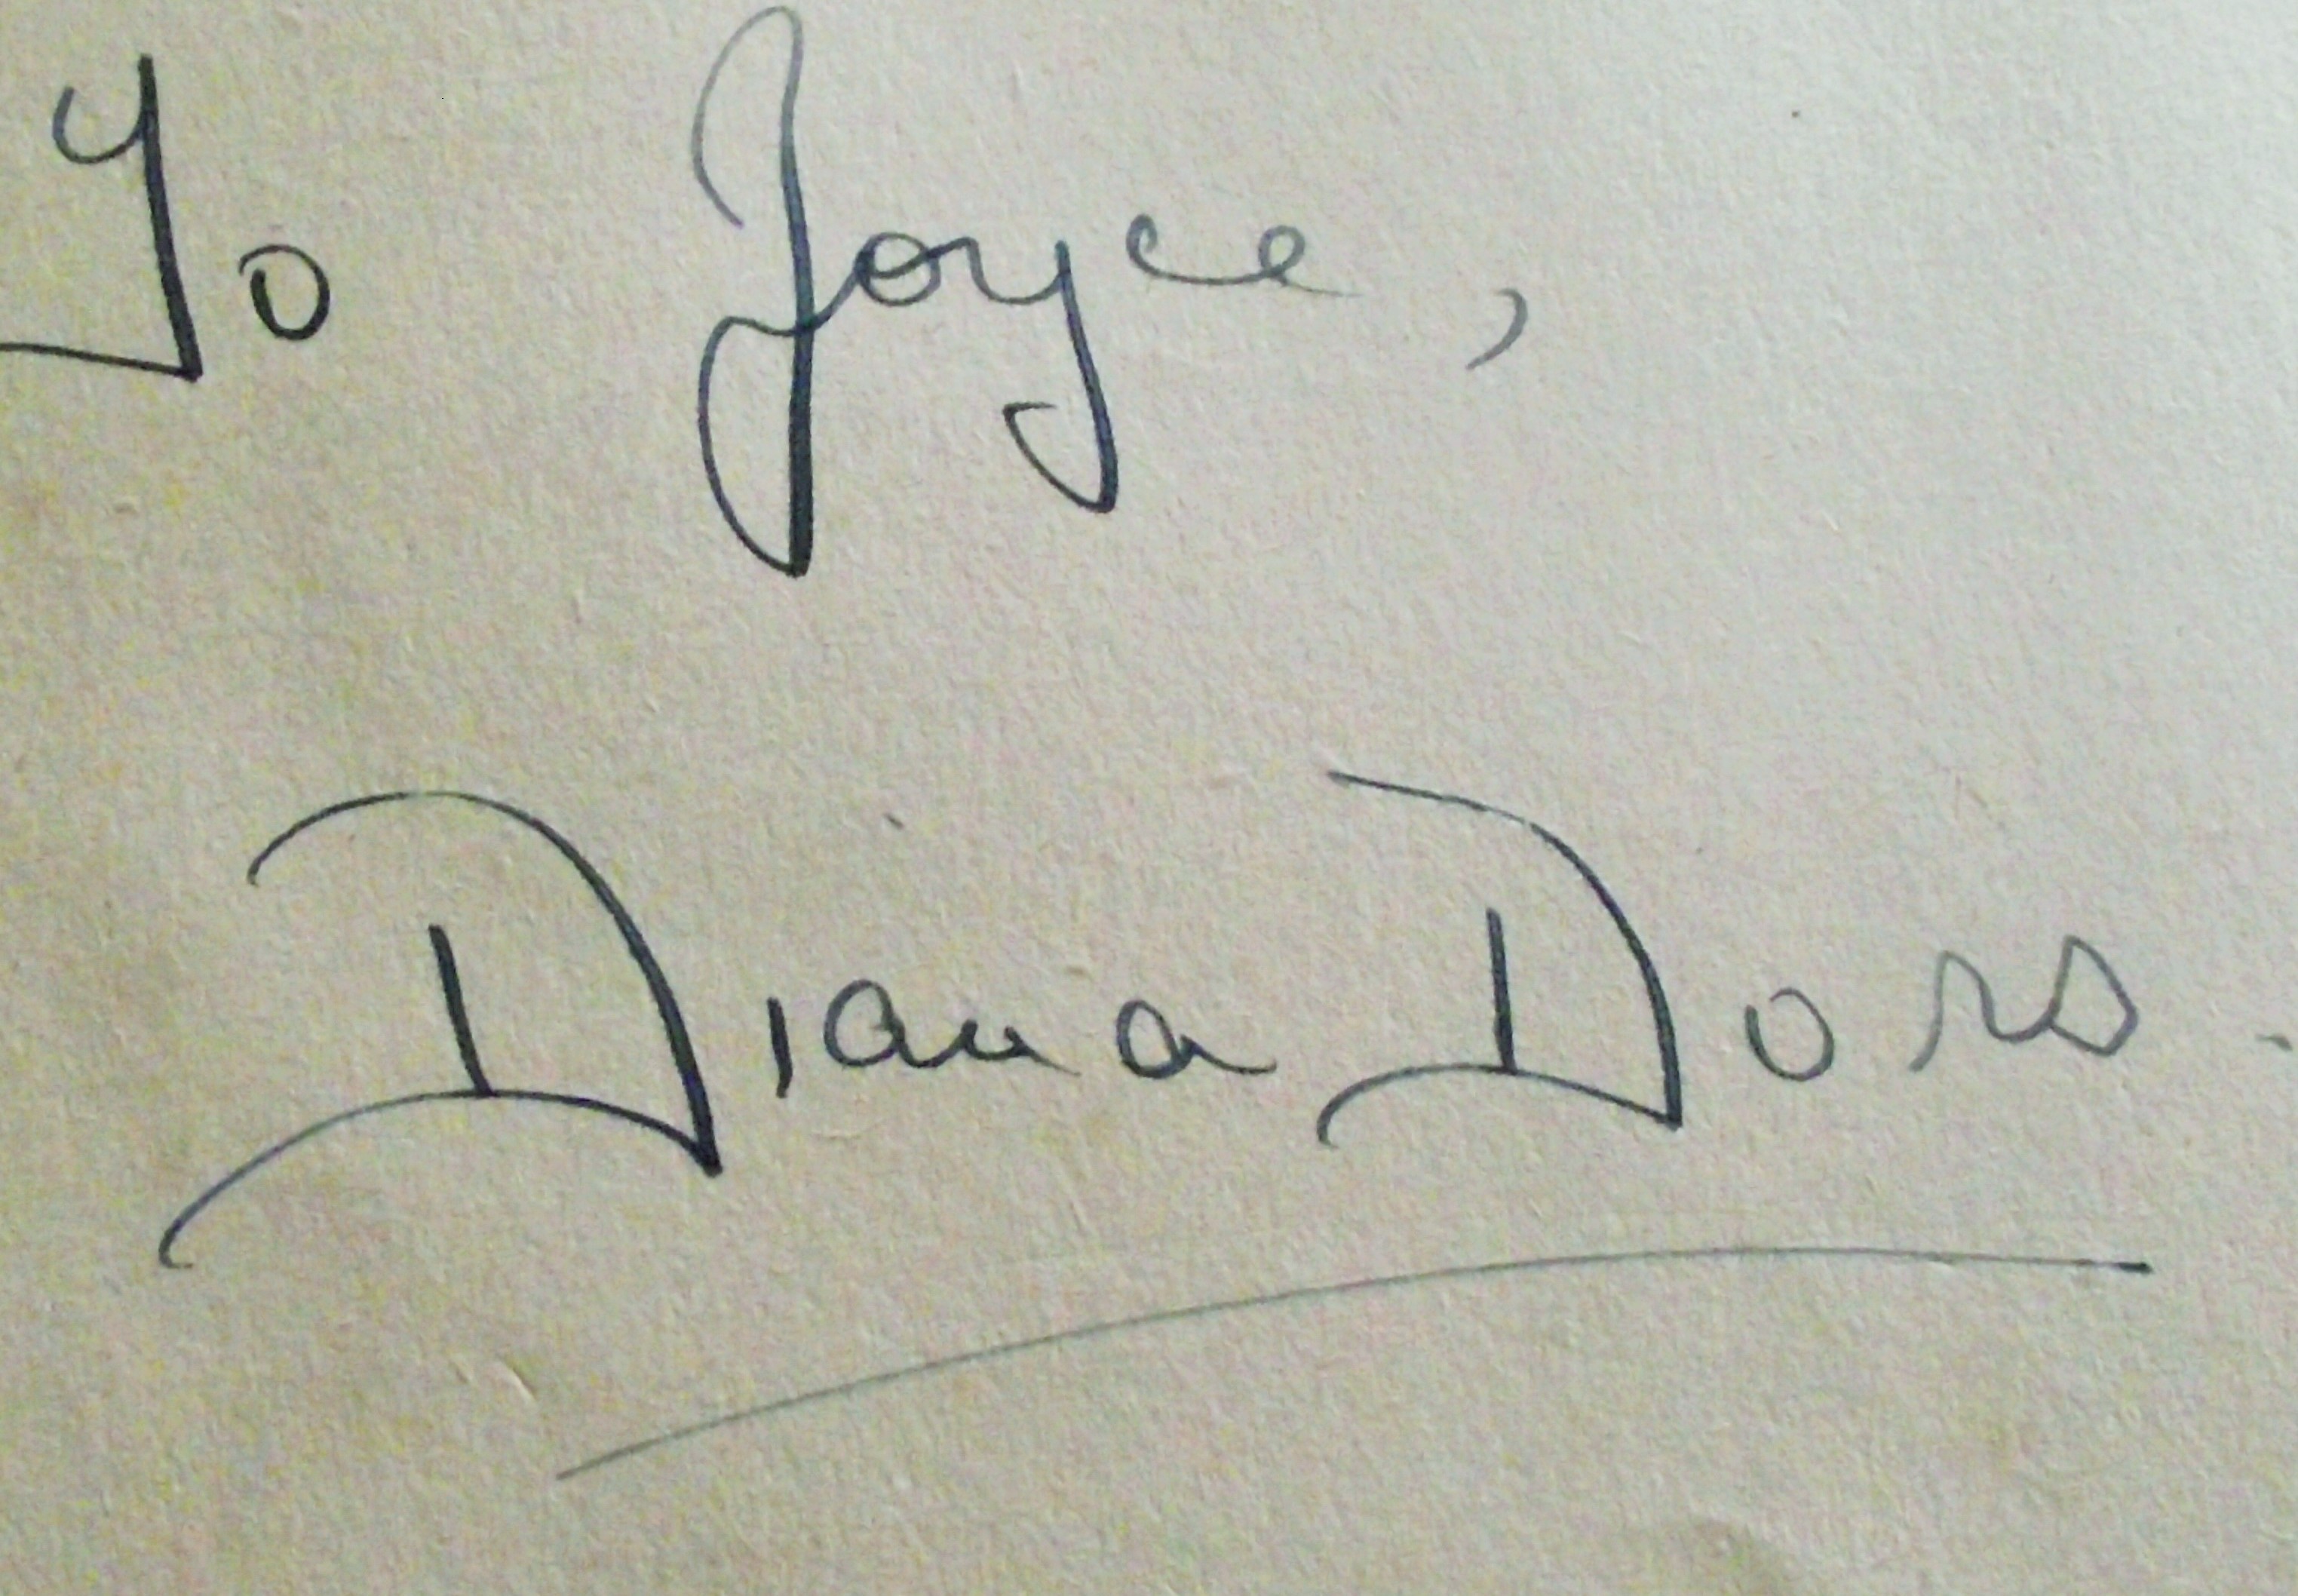 To Joyce,
Diana Dors.